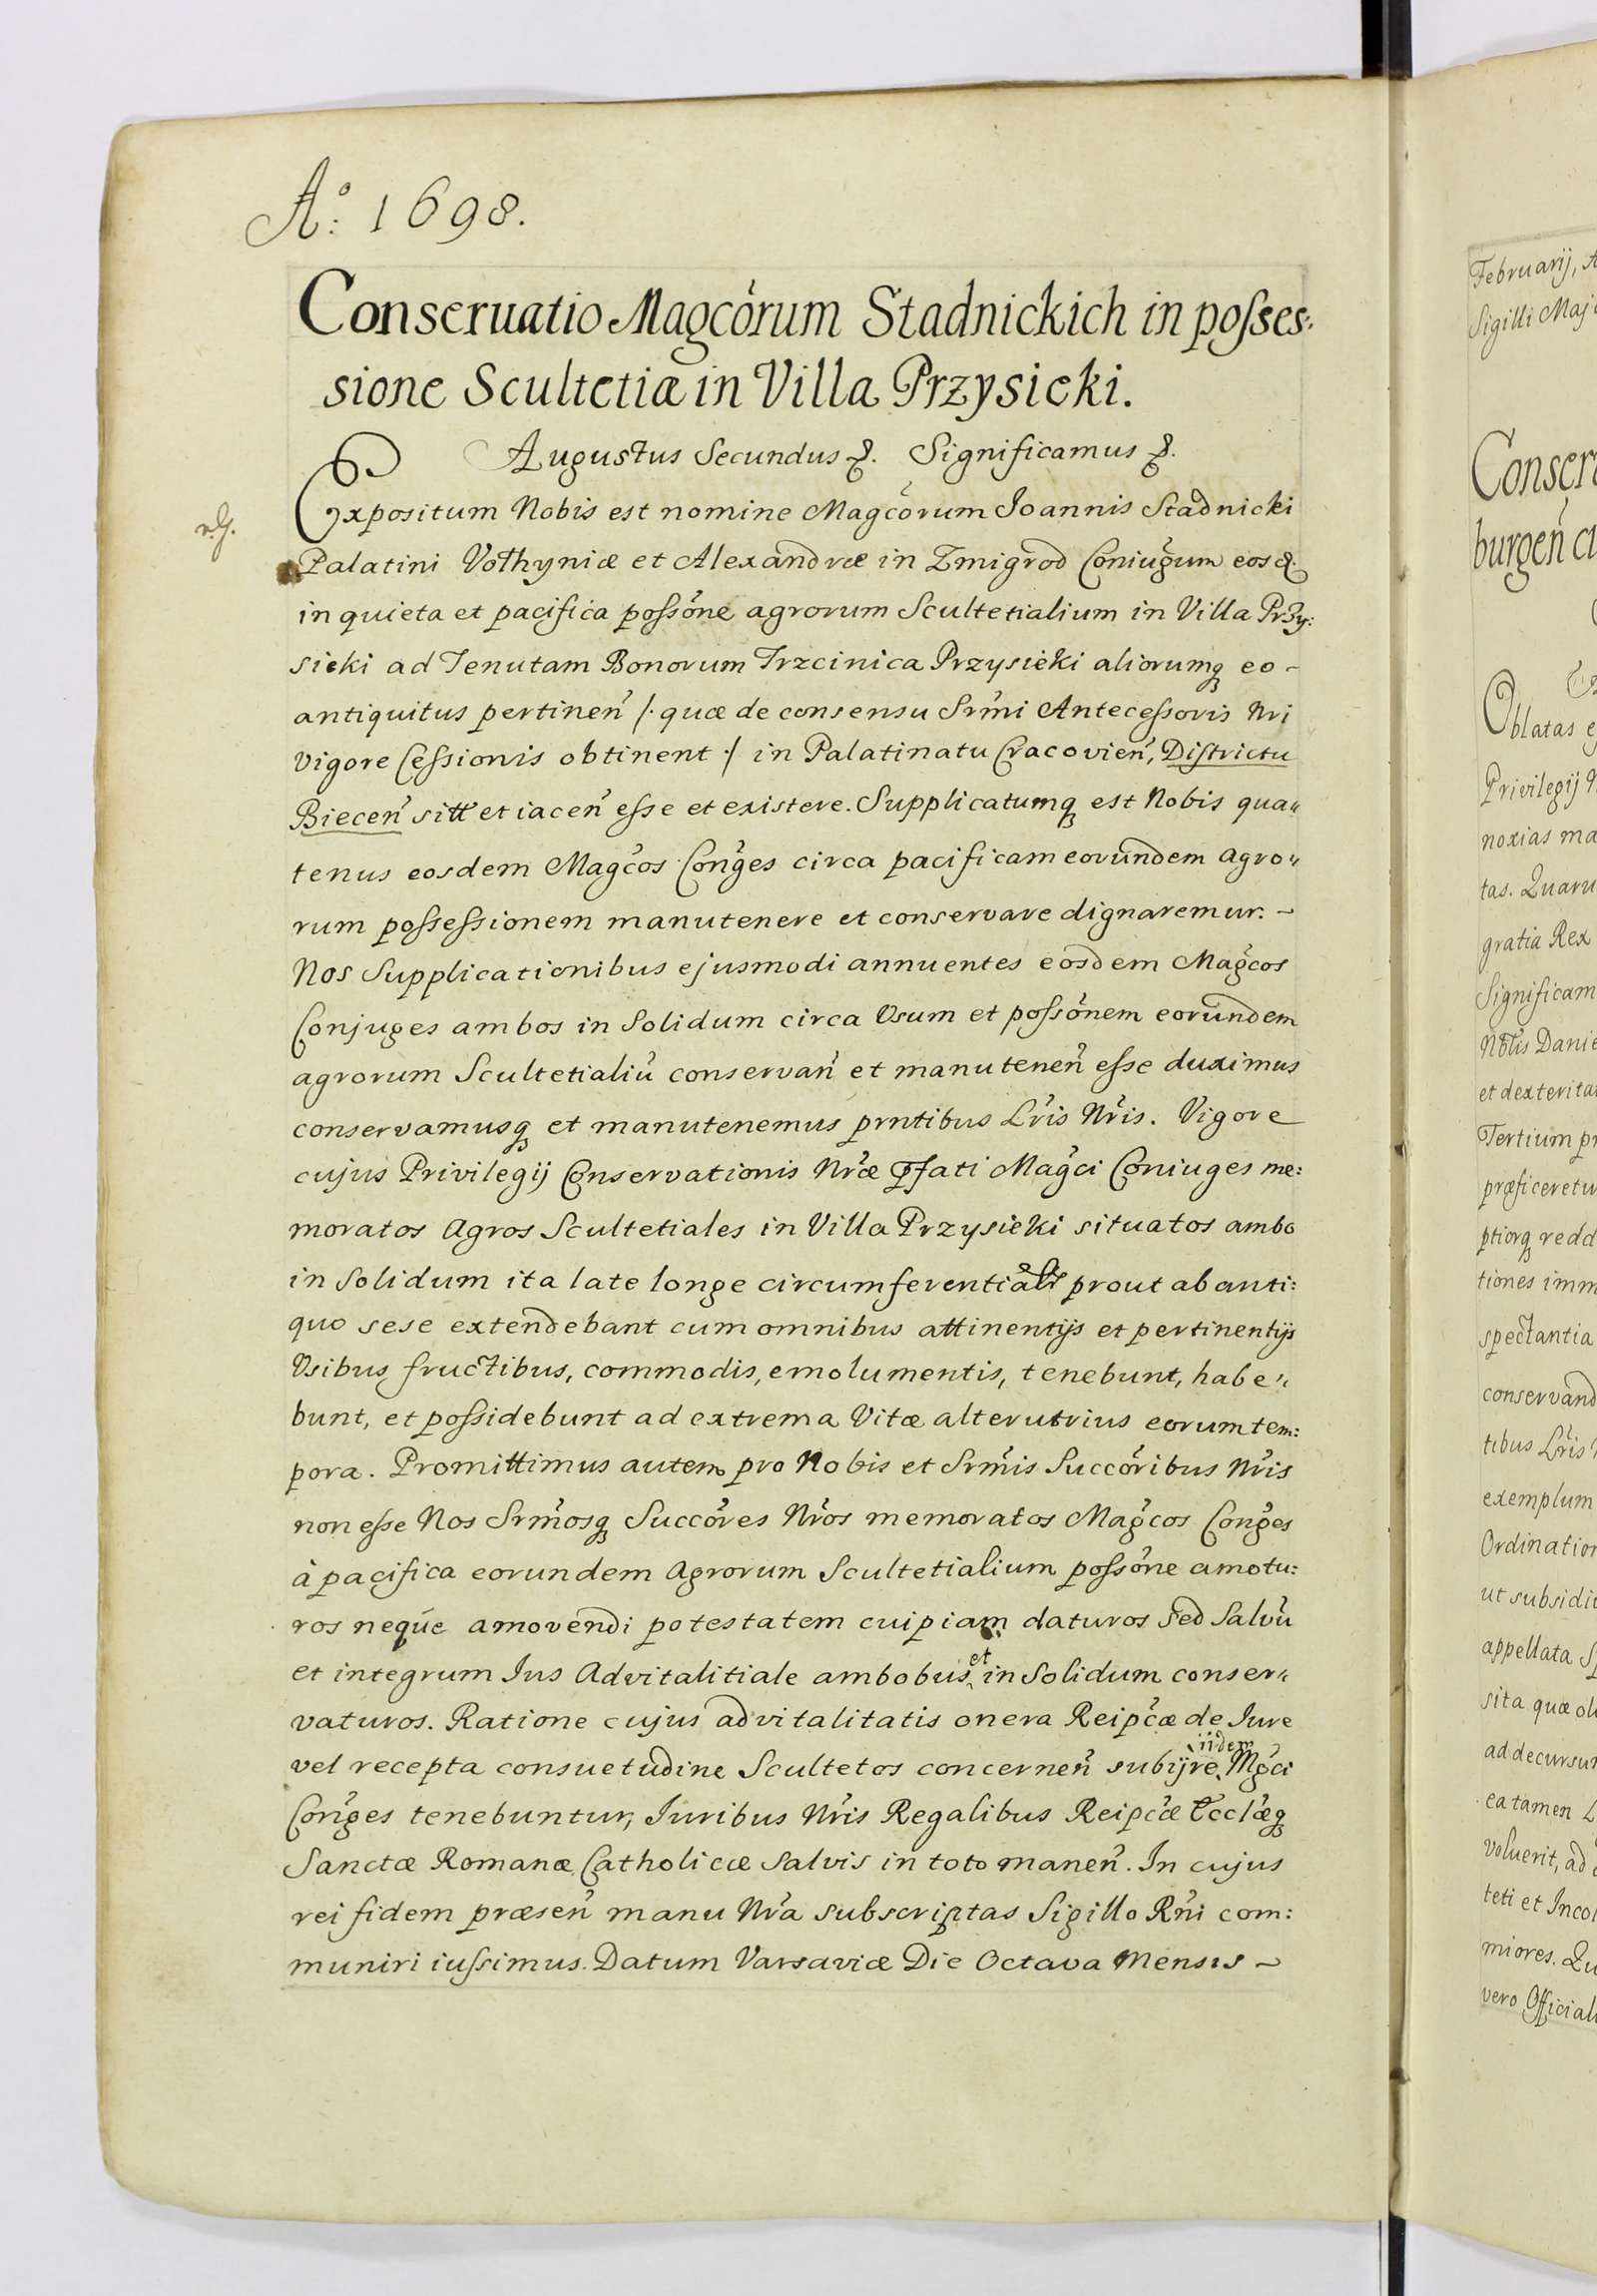 Aº: 1698.
Conseruatio Magcorum Stadnickich in posses:
sione Scultetiæ in Villa Przysieki.
Augustus Secundus &. Significamus &.
Expositum Nobis est nomine Magcorum Joannis Stadnicki
Palatini Volhyniæ et Alexandræ in Zmigrod Coniugum eos &.
in quieta et pacifica possone agrorum Scultetialium in Villa Przy:
sieki ad Tenutam Bonorum Trzcinica Przysieki aliorumq eo-
antiquitus pertinen /. quæ de consensu Srmi Antecessoris Nri
vigore Cessionis obtinent ./ in Palatinatu Cracovien, Districtu
Biecen sitt et iacen esse et existere. Supplicatumq est Nobis qua"
tenus eosdem Magcos Conges circa pacificam eorundem agro"
rum possessionem manutenere et conservare dignaremur. -
Nos Supplicationibus ejusmodi annuentes eosdem Magcos
Conjuges ambos in Solidum circa Usum et possonem eorundem
agrorum Scultetialiu conservan et manutenen esse duximus
conservamusq et manutenemus prntibus Lris Nris. Vigore
cujus Privilegij Conservationis Nræ pfati Magci Coniuges me:
moratos Agros Scultetiales in Villa Przysieki situatos ambo
in Solidum ita late longe circumferentialr prout ab anti:
quo sese extendebant cum omnibus attinentijs et pertinentijs
Usibus, fructibus, commodis, emolumentis, tenebunt, habe"
bunt, et possidebunt ad extrema Vitæ alterutrius eorum tem:
pora. Promittimus autem pro Nobis et Srmis Succoribus Nris
non esse Nos Srmosq Succores Nros memoratos Magcos Conges
à pacifica eorundem Agrorum Scultetialium possone amotu:
ros neque amovendi potestatem cuipiam daturos Sed Salvu
et integrum Jus Advitalitiale ambobus et in Solidum conser"
vaturos. Ratione cujus advitalitatis onera Reipcæ de Jure
vel recepta consuetudine Scultetos concernen subijre iidem Mgci
Conges tenebuntur, Juribus Nris Regalibus Reipcæ Ecclæq
Sanctæ Romanæ Catholicæ salvis in toto manen. In cujus
rei fidem præsen manu Nra subscriptas Sigillo Rni com:
muniri iussimus. Datum Varsaviæ Die Octava Mensis -
Februarij,
Sigilli
Oblatas
Privilegij
noxias
tas.
gratia Rex
spectantia
exemplum
appellata
sita quæ
ea tamen
voluerit, ad
teti et
miores.
vero